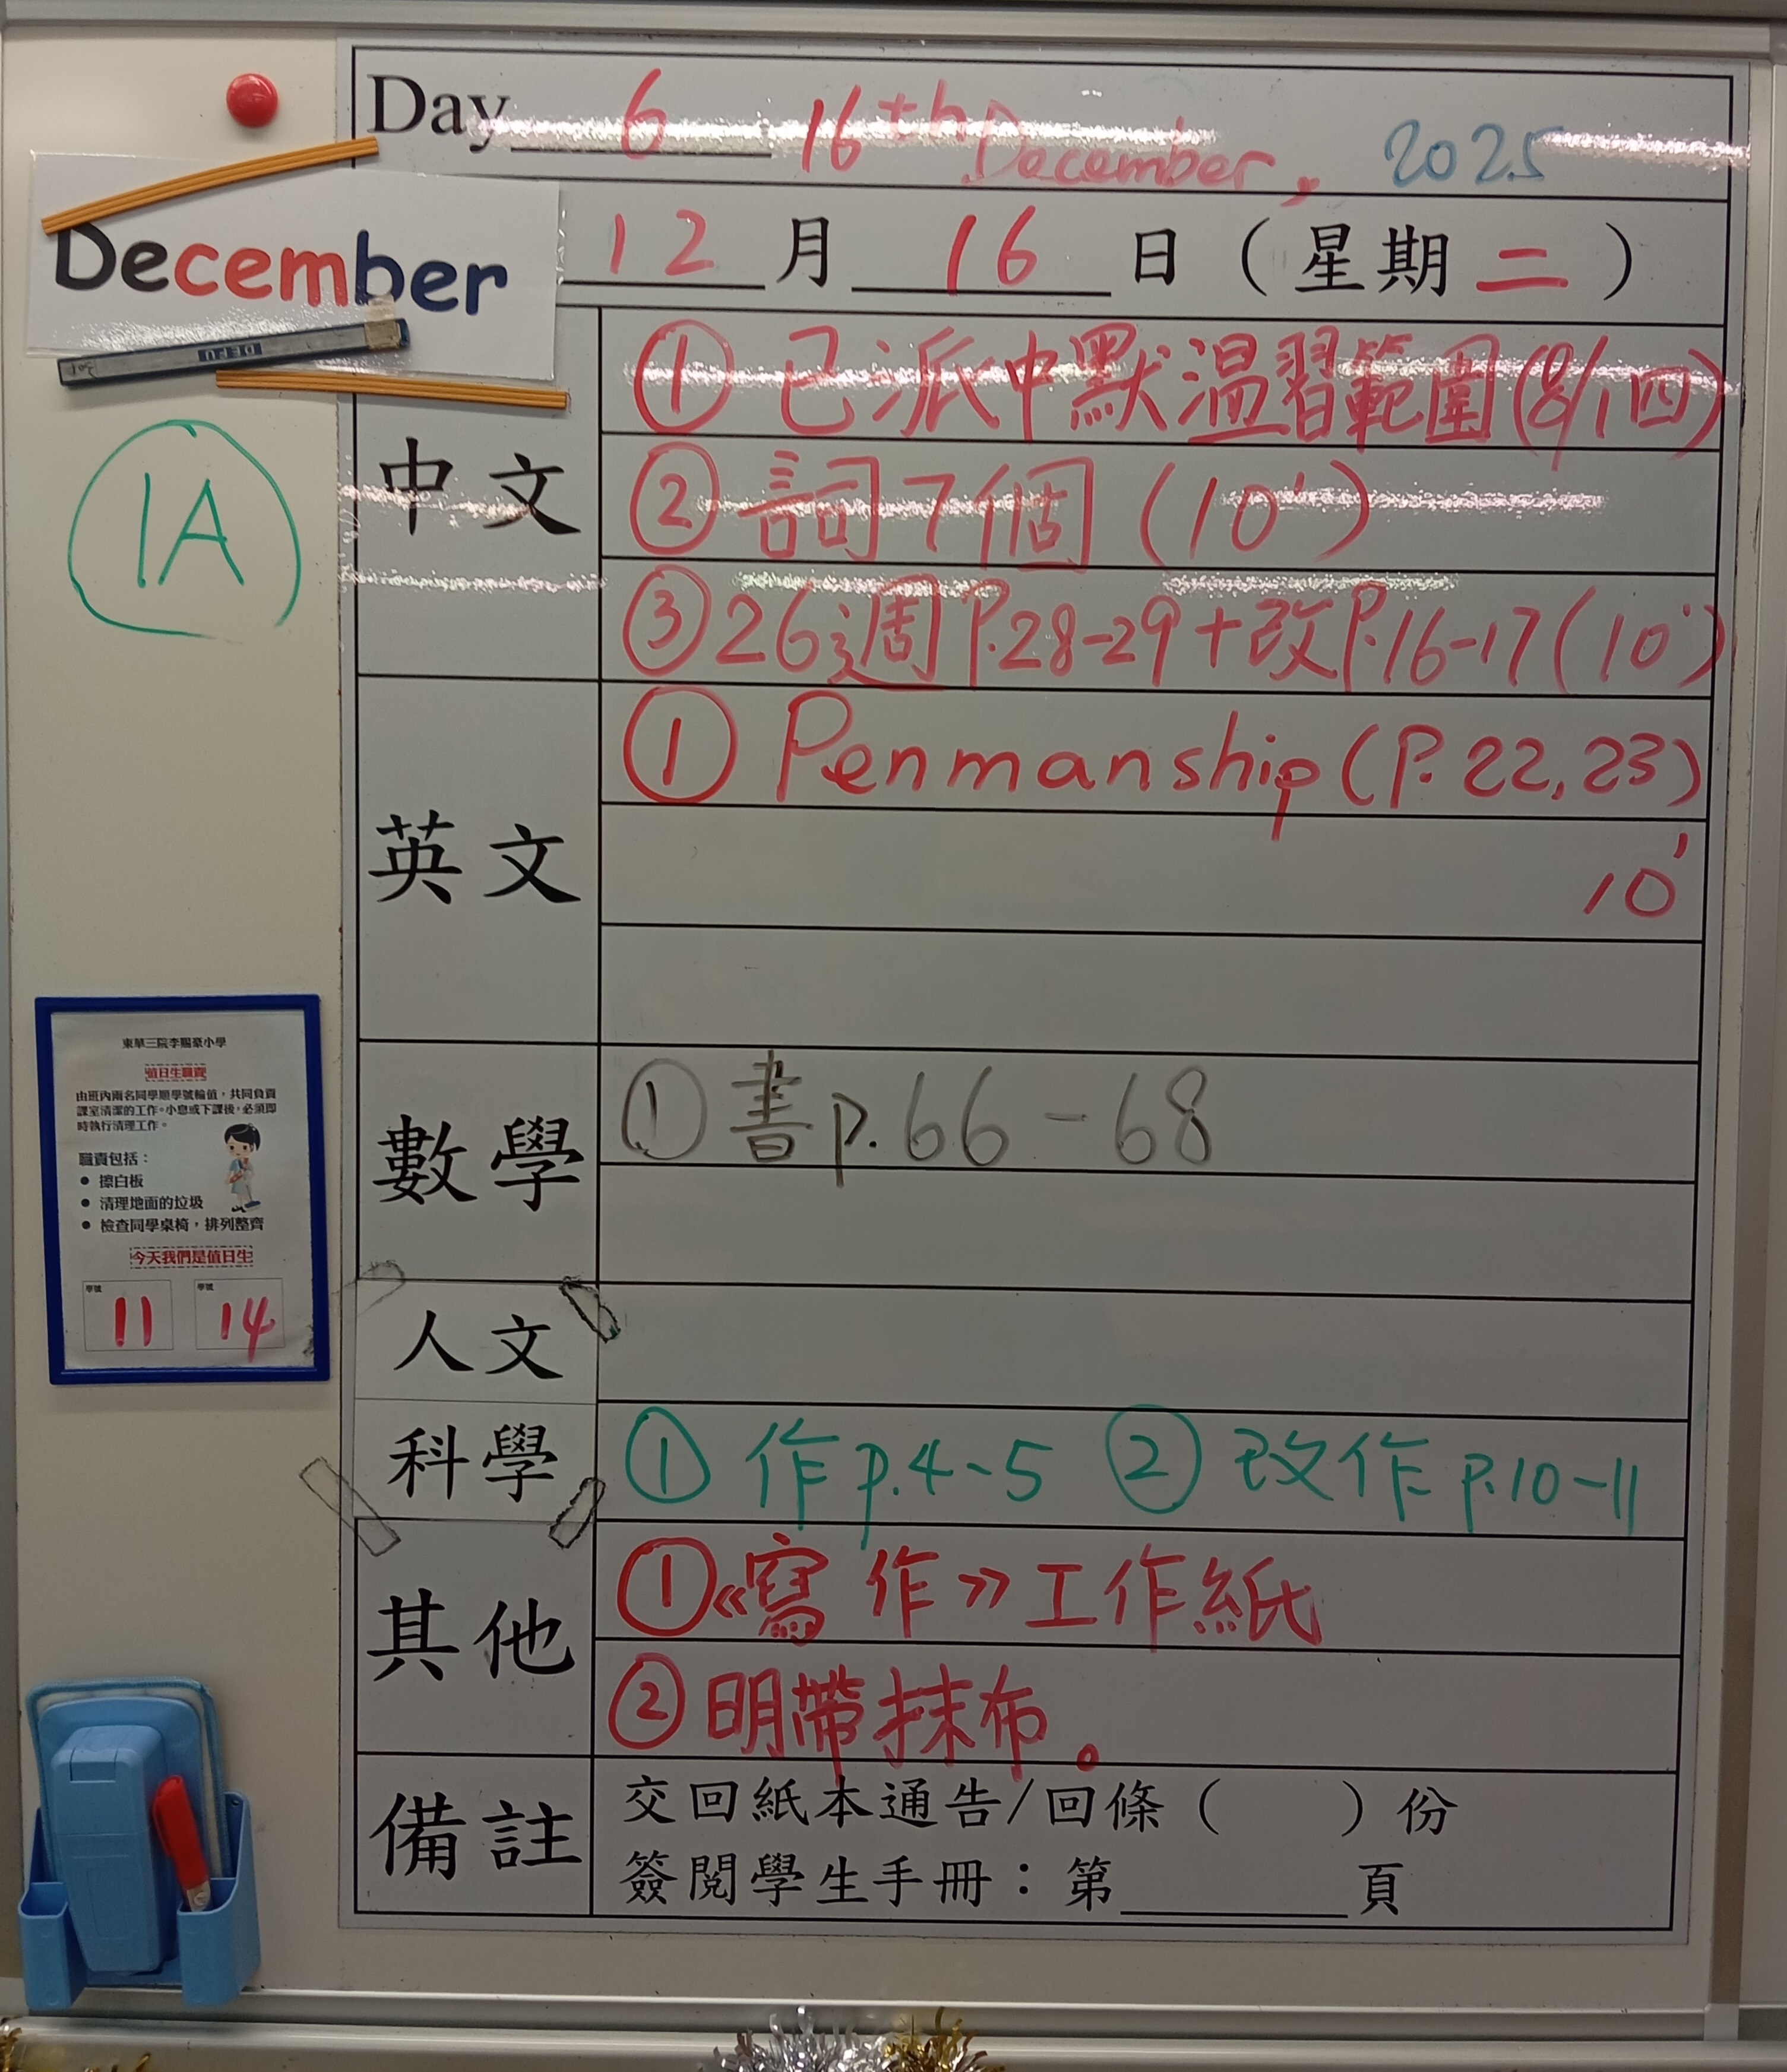 Day 6 16th December, 2025
December
12 月 16 日 ( 星期 二 )
1A
中文
① 已派中默溫習範圍 (8/1四)
② 詞7個 (10')
③ 26週 P.28-29 + 改P.16-17 (10')
英文
① Penmanship (P. 22, 23)
10'
數學
① 書p. 66 - 68
人文
科學
① 作 p.4-5 ② 改作 p.10-11
其他
① 《寫作》工作紙
② 明帶抹布。
備註
交回紙本通告/回條 ( ) 份
簽閱學生手冊：第 頁
DEFU
東華三院李賜豪小學
值日生職責
由班內兩名同學順學號輪值，共同負責
課室清潔的工作。小息或下課後，必須即
時執行清理工作。
職責包括：
● 擦白板
● 清理地面的垃圾
● 檢查同學桌椅，排列整齊
今天我們是值日生
學號 學號
11 14